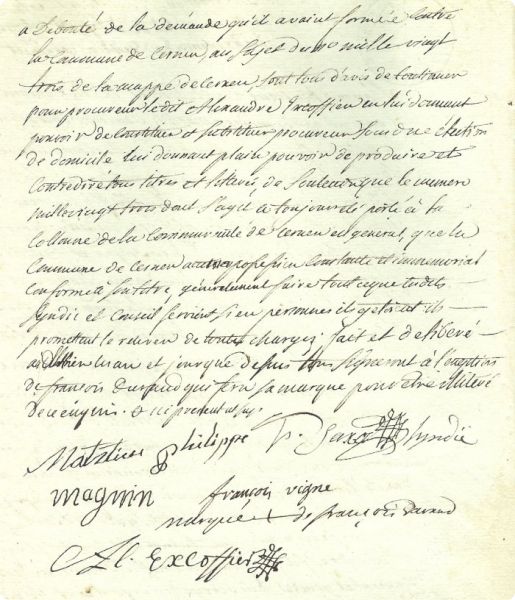 a Debouté de la demande qu'il avaint formée Contre
la Commune de Cernex, au sujet du no mille vingt
trois de la mappe de Cernex, sont tous d'avis de Continuer
pour procureur ledit Alexandre Excoffier en lui donnant
pouvoir de Constituer et substituer procureur sous due élection
de domicile lui donnant plain pouvoir de produire et
Contredire tous titres et de soutenir que le numero
mille vingt trois dont s'agit a toujours été porté à la
Collonne de la Communauté de Cernex en general, que la
Commune de Cernex a une possession Constante et immemorial
Conforme à son titre, généralement faire tout ce que lesdits
syndic et Conseil feroient si en personnes ils y etoient ils
promettant le relever de toutes charges, fait et délibéré
au lieu an et jour que dessus tous signeront à l'exception
de françois Durand qui fera sa marque pour être illiteré
de ce enquis. &
Mathieu philippe P. syndic
magnin françois vigne
marque + de françois Durand
Al. Excoffier